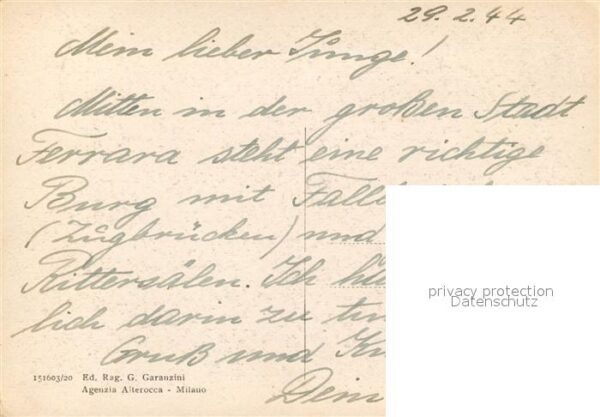 29. 2. 44
Mein lieber Junge!
Mitten in der großen Stadt
Ferrara steht eine richtige
Burg mit
(Zugbrücken) und
Rittersälen. Ich
lich darin zu
Gruß und
Dein
privacy protection
Datenschutz
151603/20 Ed. Rag. G. Garanzini
Agenzia Alterocca - Milano